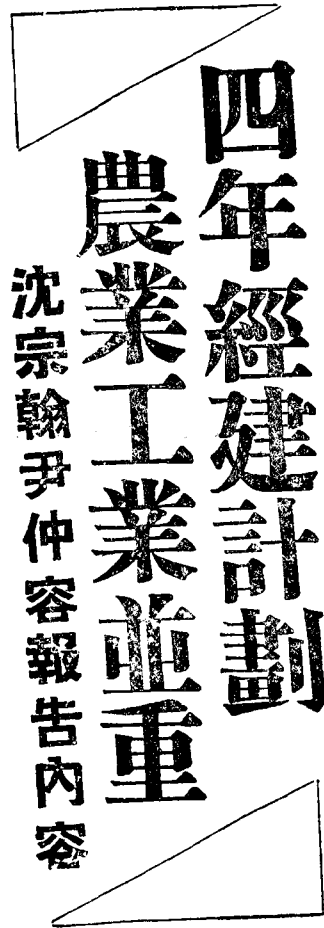 四年經建計劃
農業工業並重
沈宗翰尹仲容報告內容